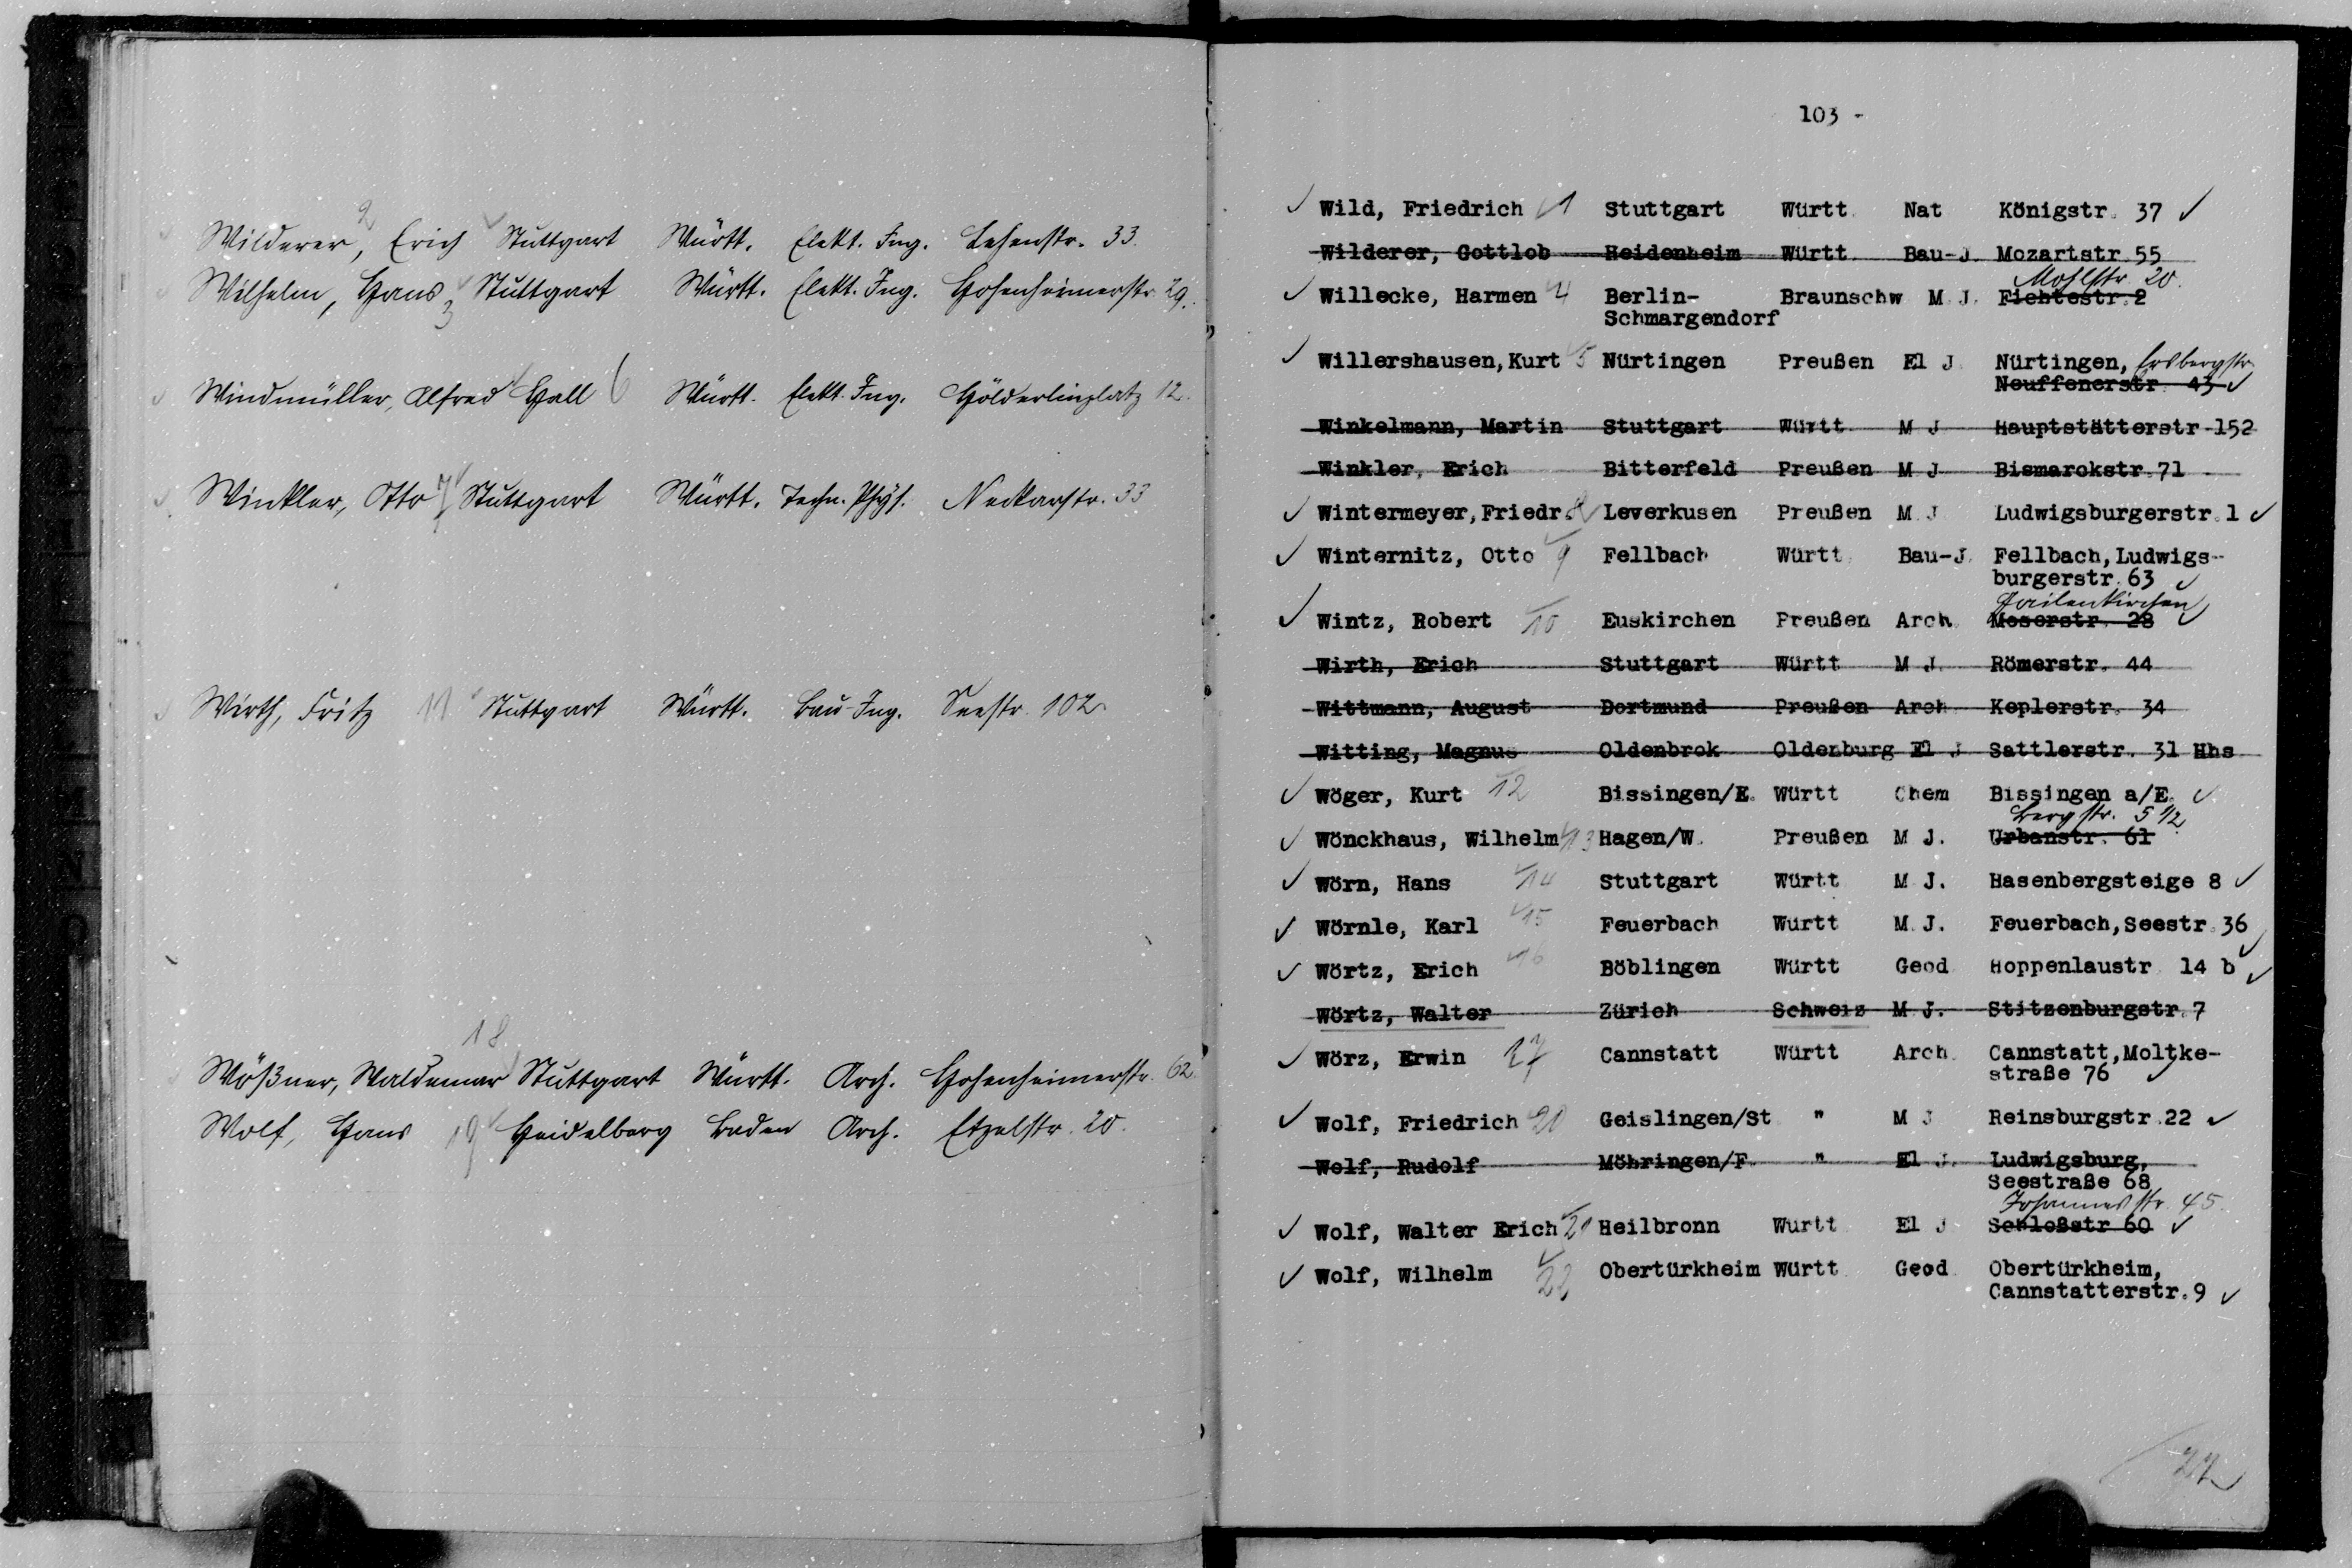 Wilderer, Erich 2 Stuttgart Württ. Elekt. Ing. Lehenstr. 33.
Wilhelm, Hans 3 Stuttgart Württ. Elekt. Ing. Hohenheimerstr. 29.
Windmüller, Alfred Hall 6 Württ. Elekt. Ing. Hölderlinplatz 12.
Winkler, Otto 7 Stuttgart Württ. Techn. Phys. Neckarstr. 33
Wirth, Fritz 11 Stuttgart Württ. Bau-Ing. Seestr. 102
18
Wößner, Waldemar Stuttgart Württ. Arch. Hohenheimerstr. 62.
Wolf, Hans 19 Heidelberg Baden Arch. Etzelstr. 20.
103 -
Wild, Friedrich 1 Stuttgart Württ. Nat Königstr. 37
Wilderer, Gottlob Heidenheim Württ. Bau-J. Mozartstr. 55
Mohlstr. 20.
Willecke, Harmen 4 Berlin- Braunschw M.J. Fichtestr. 2
Schmargendorf
Willershausen, Kurt 5 Nürtingen Preußen El J. Nürtingen, Ersbergstr
Neuffenerstr. 43
Winkelmann, Martin Stuttgart Württ. M J Hauptstätterstr 152
Winkler, Erich Bitterfeld Preußen M J Bismarckstr. 71
Wintermeyer, Friedr. 8 Leverkusen Preußen M.J. Ludwigsburgerstr. 1
Winternitz, Otto 9 Fellbach Württ. Bau-J. Fellbach, Ludwigs-
burgerstr. 63
Geilenkirchen
Wintz, Robert 10 Euskirchen Preußen Arch. Moserstr. 28
Wirth, Erich Stuttgart Württ M J. Römerstr. 44
Wittmann, August Dortmund Preußen Arch Keplerstr. 34
Witting, Magnus Oldenbrok Oldenburg El J Sattlerstr. 31 Hhs
Wöger, Kurt 12 Bissingen/E. Württ Chem Bissingen a/E.
Bergstr. 5 1/2
Wönckhaus, Wilhelm 13 Hagen/W. Preußen M J. Urbanstr. 61
Wörn, Hans 14 Stuttgart Württ M J. Hasenbergsteige 8
Wörnle, Karl 15 Feuerbach Württ M.J. Feuerbach, Seestr. 36
Wörtz, Erich 16 Böblingen Württ Geod. Hoppenlaustr 14 b
Wörtz, Walter Zürich Schweiz M J. Stitzenburgstr. 7
Wörz, Erwin 17 Cannstatt Württ Arch. Cannstatt, Moltke-
straße 76
Wolf, Friedrich 20 Geislingen/St. " M J Reinsburgstr. 22
Wolf, Rudolf Möhringen/F. " El J. Ludwigsburg,
Seestraße 68
Johannesstr. 45.
Wolf, Walter Erich 21 Heilbronn Württ El J Schloßstr 60
Wolf, Wilhelm 22 Obertürkheim Württ. Geod. Obertürkheim,
Cannstatterstr. 9
22